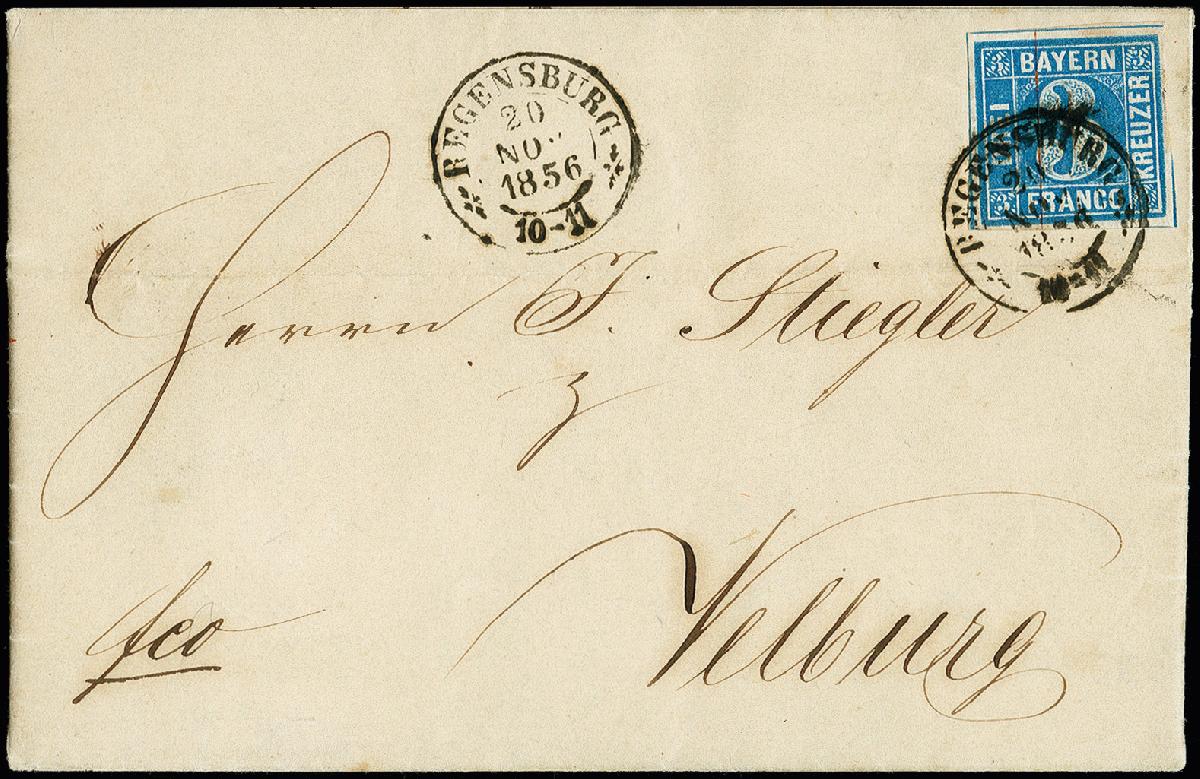 REGENSBURG
20
NOV
1856
10-11
BAYERN
DREI
KREUZER
FRANCO
3
3
3
3
REGENSBURG
20
NOV
1856
10-11
Herrn J. Stiegler
z
Velburg
fco